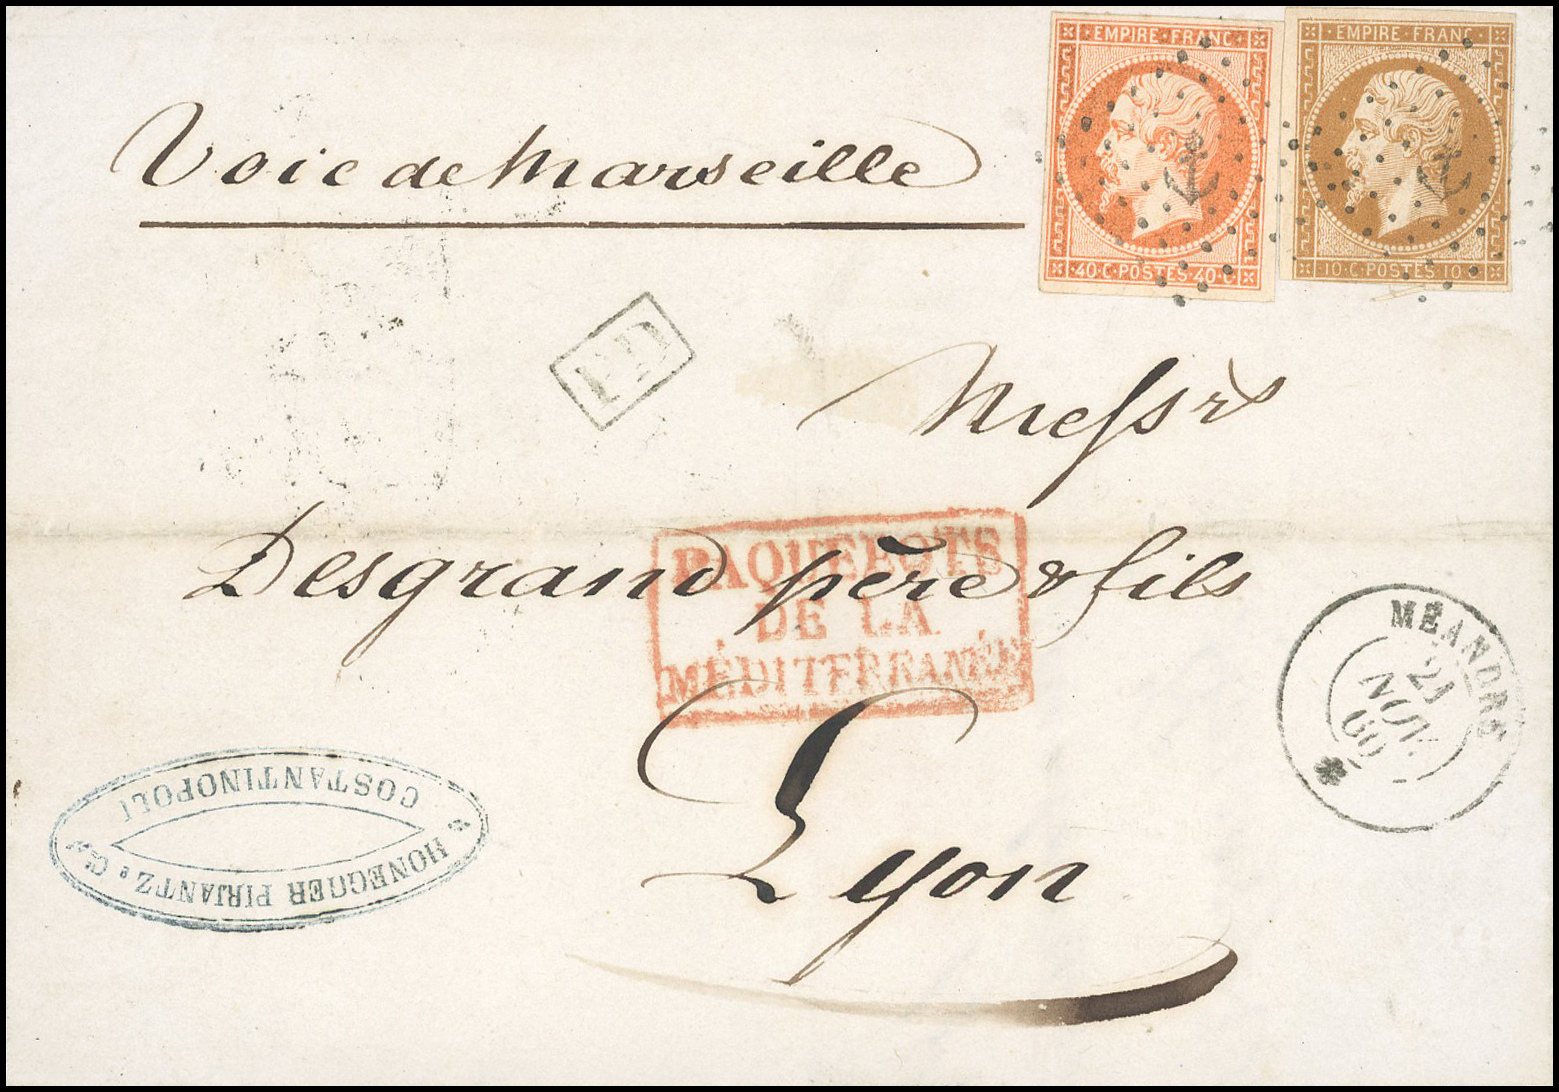 EMPIRE · FRANC ·
40 · C · POSTES · 40 · C ·
EMPIRE · FRANC ·
10 · C · POSTES · 10 ·
Voie de Marseille
PD
Messrs
Desgrand père & fils
PAQUEBOTS
DE LA
MÉDITERRANÉE
Lyon
MÉANDRE
21
NOV.
60
HONEGGER PIRJANTZ & Co.
COSTANTINOPOLI